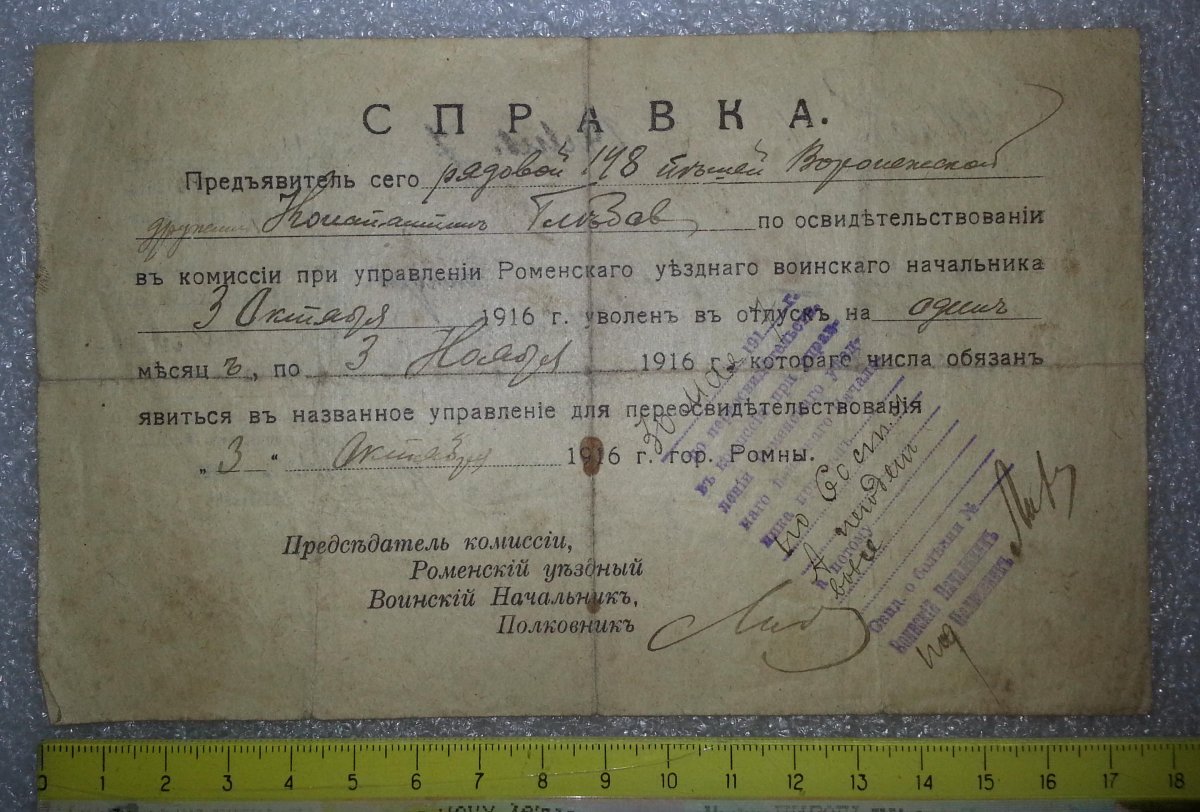 СПРАВКА.
Предъявитель сего рядовой 148 пѣшей Воронежской
дружины Константинъ по освидѣтельствованіи
въ комиссіи при управленіи Роменскаго уѣзднаго воинскаго начальника
3 Октября 1916 г. уволенъ въ отпускъ на одинъ
мѣсяцъ, по 3 Ноября 1916 г. котораго числа обязанъ
явиться въ названное управленіе для переосвидѣтельствованія
„3“ Октября 1916 г. гор. Ромны.
Предсѣдатель комиссіи,
Роменскій уѣздный
Воинскій Начальникъ,
Полковникъ
30 мая 191 г.
по переосвидѣтельств.
въ комиссіи при управ-
леніи Роменскаго уѣзд-
наго воинскаго началь-
ника
по 60 ст.
и потому
Свид. о болѣзни №
Воинскій Начальникъ
Полковникъ
0 1 2 3 4 5 6 7 8 9 10 11 12 13 14 15 16 17 18